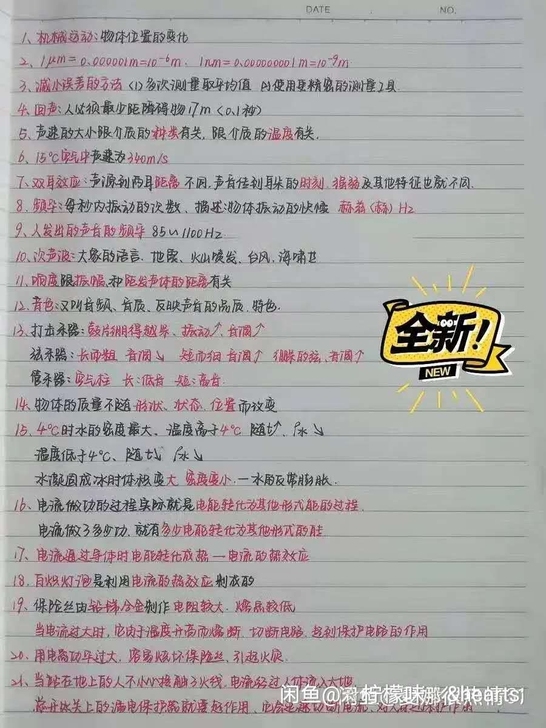 DATE
NO.
1、机械运动:物体位置的变化
2、1μm=0.000001m=10⁻⁶m、1nm=0.000000001m=10⁻⁹m
3、减小误差的方法 (1)多次测量取平均值 (2)使用更精密的测量工具
4、回声:人必须最少距障碍物17m (0.1秒)
5、声速的大小跟介质的种类有关、跟介质的温度有关
6、15℃空气中声速为340m/s
7、双耳效应:声源到两耳距离不同,声音传到耳朵的时刻、强弱及其他特征也就不同
8、频率:每秒内振动的次数、描述物体振动的快慢 赫兹(赫)Hz
9、人发出的声音的频率 85~1100Hz
10、次声波:大象的语言、地震、火山喷发、台风、海啸
11、响度跟振幅、和距发声体的距离有关
12、音色:又叫音频、音质、反映声音的品质、特色
13、打击乐器:鼓片绷得越紧、振动↑、音调↑
弦乐器:长而粗 音调↓ 短而细 音调↑ 绷紧的弦、音调↑
管乐器:空气柱 长:低音 短:高音
14、物体的质量不随形状、状态、位置而改变
15、4℃时水的密度最大、温度高于4℃ 随t↑ ρ水↓
温度低于4℃、随t↓ ρ水↓
水凝固成冰时体积变大 密度变小 — 水的反常膨胀
16、电流做功的过程实际就是电能转化为其他形式能的过程
电流做了多少功、就有多少电能转化为其他形式的能
17、电流通过导体时电能转化成热 — 电流的热效应
18、白炽灯泡是利用电流的热效应制成的
19、保险丝由铅锑合金制作 电阻较大、熔点较低
当电流过大时,它由于温度升高而熔断、切断电路、起到保护电路的作用
20、用电器功率过大,容易烧坏保险丝,引起火灾
21、当站在地上的人不小心接触了火线、电流经过人体流入大地
全新!
NEW
闲鱼@